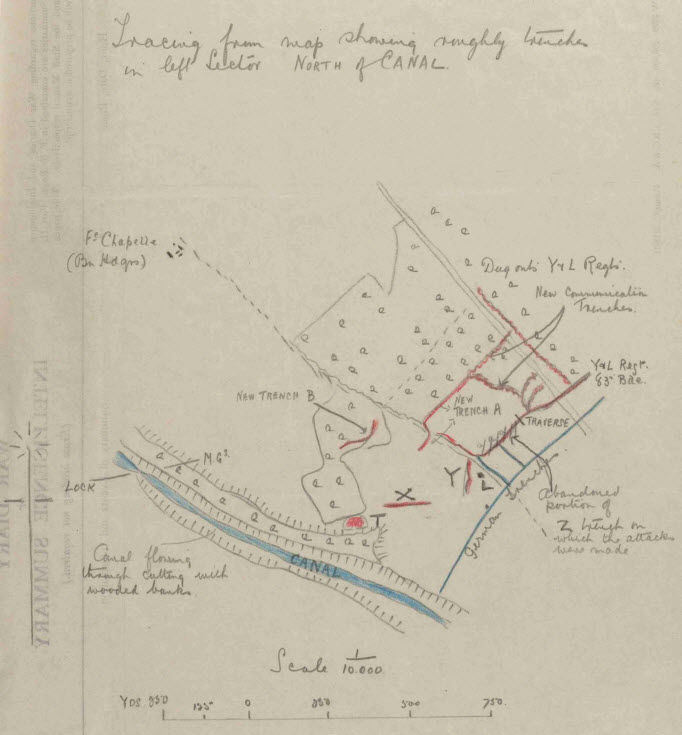 Tracing from map showing roughly trenches
in left Sector NORTH of CANAL.
Fe Chapelle
(Bn Hdqrs)
Dug outs Y & L Regt.
New Communication
Trenches.
Y & L Regt.
83 Bde.
NEW TRENCH B
NEW
TRENCH A
TRAVERSE
M.Gs
LOCK
X
Y
L
T
German Trenches
Abandoned
portion of
Z trench on
which the attacks
were made
Canal flowing
through cutting with
wooded banks
CANAL
Scale 1/10.000
YDS 250 125 0 250 500 750.
WAR DIARY
INTELLIGENCE SUMMARY